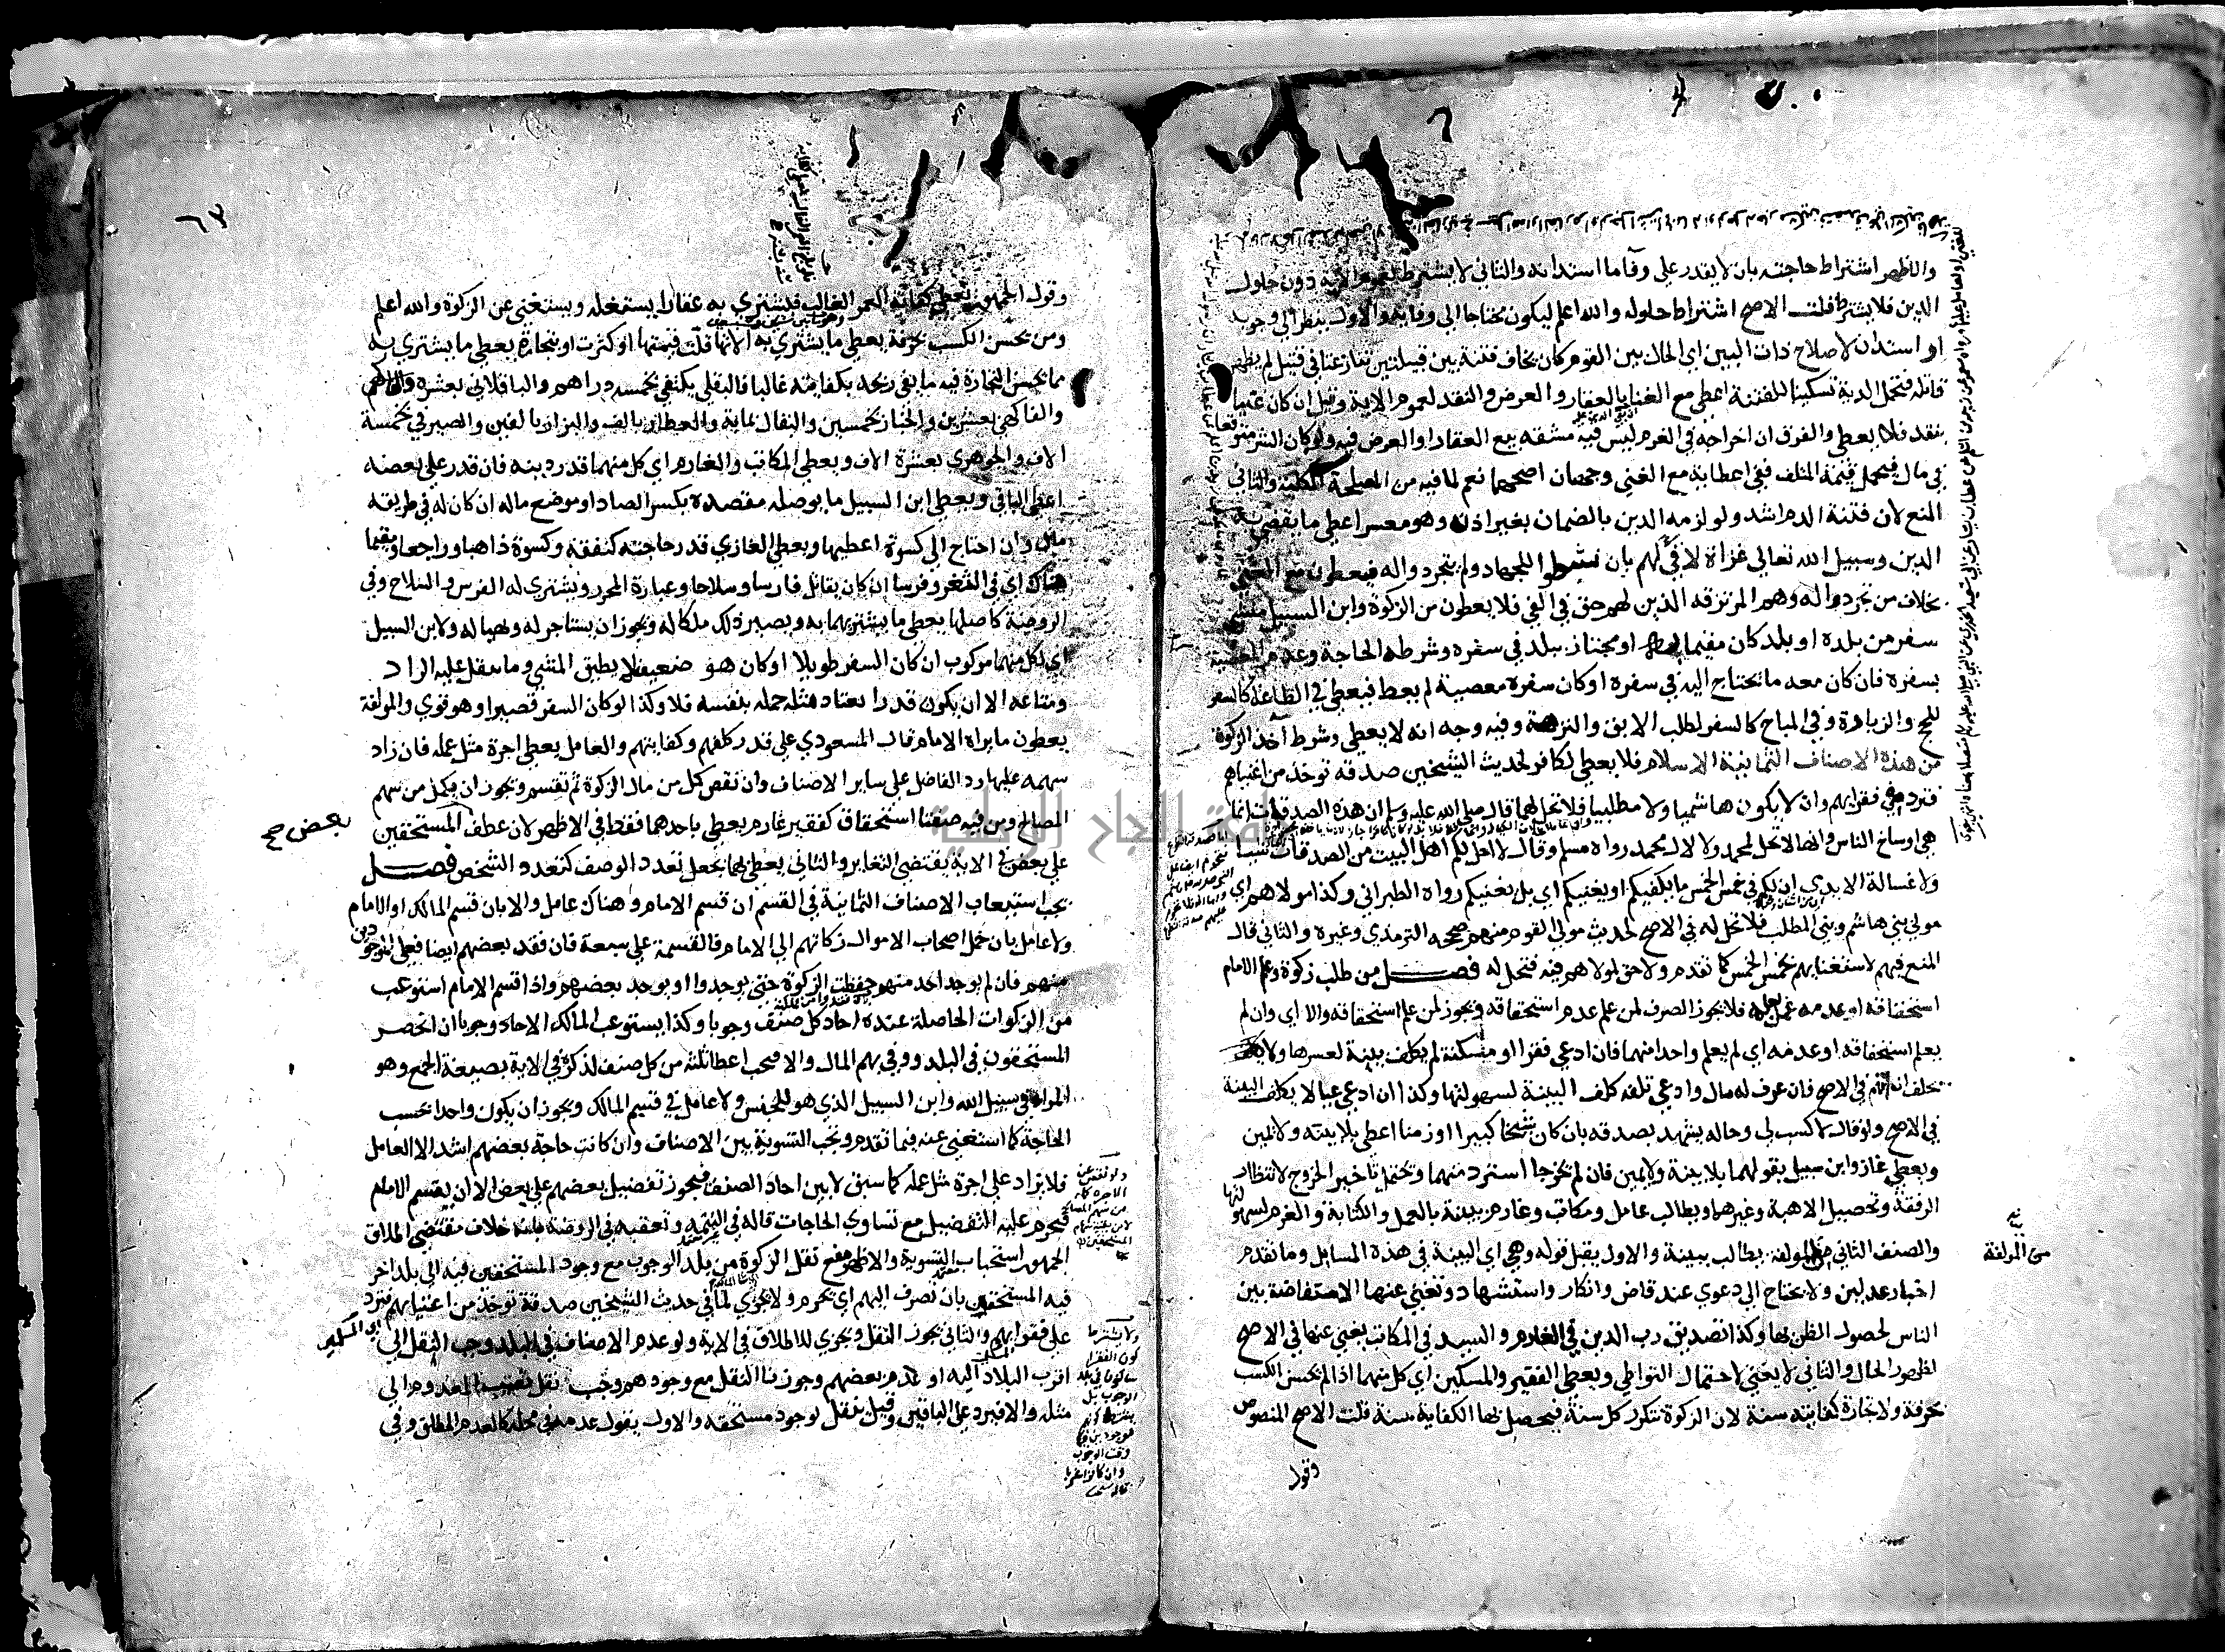 والاظهر اشتراط حاجته بان لا يقدر على وفآ ما استدانه والثاني لا يشترط لعموم الاية دون حلول
الدين فلا يشترط قلت الاصح اشتراط حلوله والله اعلم ليكون محتاجا الى وفايه والاول ينظر الى وجوبه
او استدان لاصلاح ذات البين اى الحال بين القوم كان يخاف فتنة بين قبيلتين تنازعتا في قتيل لم يظهر
قاتله فتحمل الدية تسكينا للفتنة اعطى مع الغنا بالعقار والعرض والنقد لعموم الاية وقيل ان كان غنيا
بنقد فلا يعطى والفرق ان اخراجه في الغرم ليس فيه مشقة بيع العقار او العرض فيه ولو كان
في مال فتحمل قيمة المتلف ففي اعطايه مع الغني وجهان اصحهما نعم لما فيه من المصلحة الكلية والثاني
المنع لان فتنة الدم اشد ولو لزمه الدين بالضمان بغير اذن وهو معسر اعطي ما يقضى به
الدين وسبيل الله تعالى غزاة لا فئ لهم بان نشطوا للجهاد ولم يتجردوا له فيعطون مع الغنى
بخلاف من تجردوا له وهم المرتزقة الذين لهم حق في الفئ فلا يعطون من الزكوة وابن السبيل منشئ
سفر من بلده او بلد كان مقيما به او مجتاز ببلد في سفره وشرطه الحاجة وعدم المعصية
بسفره فان كان معه ما يحتاج اليه في سفره او كان سفره معصية لم يعط فيعطى في الطاعة كالسفر
للحج والزيارة وفي المباح كالسفر لطلب الابق والنزهة وفيه وجه انه لا يعطى وشرط آخذ الزكوة
من هذه الاصناف الثمانية الاسلام فلا يعطى لكافر لحديث الشيخين صدقة توخذ من اغنياهم
فترد على فقرايهم وان لا يكون هاشميا ولا مطلبيا فلا تحل لهما قال صلى الله عليه وسلم ان هذه الصدقات انما
هي اوساخ الناس وانها لا تحل لمحمد ولا لال محمد رواه مسلم وقال لا احل لكم اهل البيت من الصدقات شيئا
ولا غسالة الايدي ان لكم في خمس الخمس ما يكفيكم او يغنيكم اى بل يغنيكم رواه الطبراني وكذا مولاهم اي
مولى بني هاشم وبني المطلب فلا تحل له في الاصح لحديث مولى القوم منهم صححه الترمذي وغيره والثاني قال
المنع فيهم لاستغنايهم بخمس الخمس كما تقدم ولا حق لمولاهم فيه فتحل له فصل من طلب زكوة وعلم الامام
استحقاقه او عدمه عمل بعلمه فلا يجوز الصرف لمن علم عدم استحقاقه ويجوز لمن علم استحقاقه والا اى وان لم
يعلم استحقاقه او عدمه اي لم يعلم واحدا منهما فان ادعى فقرا او مسكنة لم يكلف ببينة لعسرها ولا
يحلف ان اتهم في الاصح فان عرف له مال وادعى تلفه كلف البينة لسهولتها وكذا ان ادعى عيالا يكلف البينة
في الاصح ولو قال لا كسب لي وحاله يشهد بصدقه بان كان شيخا كبيرا او زمنا اعطي بلا بينة ولا يمين
ويعطى غاز وابن سبيل بقولهما بلا بينة ولا يمين فان لم يخرجا استرد منهما ويحتمل تاخير الخروج لانتظار
الرفقة وتحصيل الاهبة وغيرهما ويطالب عامل ومكاتب وغارم ببينة بالعمل والكتابة والغرم لسهولتها
والصنف الثاني من المولفة يطالب ببينة والاول يقبل قوله وهي اى البينة في هذه المسايل وما تقدم
اخبار عدلين ولا يحتاج الى دعوى عند قاض وانكار واستشهاد وتغني عنها الاستفاضة بين
الناس لحصول الظن بها وكذا تصديق رب الدين في الغارم والسيد في المكاتب يغني عنها في الاصح
لظهور الحال والثاني لا يغني لاحتمال التواطي ويعطى الفقير والمسكين اى كل منهما اذا لم يحسن الكسب
بحرفة ولا تجارة كفاية سنة لان الزكوة تتكرر كل سنة فيحصل بها الكفاية سنة قلت الاصح المنصوص
وقول
من المولفة
٦٣
وقول الجمهور يعطى كفاية العمر الغالب فيشتري به عقارا يستغله ويستغني عن الزكوة والله اعلم
ومن يحسن الكسب بحرفة يعطى ما يشتري به الاتها قلت قيمتها او كثرت او بتجارة يعطى ما يشتري به
مما يحسن التجارة فيه ما يفي ربحه بكفايته غالبا فالبقلي يكتفي بخمسة دراهم والباقلاني بعشرة
والفاكهي بعشرين والخباز بخمسين والبقال بماية والعطار بالف والبزاز بالفين والصيرفي بخمسة
الاف والجوهري بعشرة الاف ويعطى المكاتب والغارم اى كل منهما قدر دينه فان قدر على بعضه
اعطي الباقي ويعطى ابن السبيل ما يوصله مقصده بكسر الصاد او موضع ماله ان كان له في طريقه
مال وان احتاج الى كسوة اعطيها ويعطى الغازي قدر حاجته كنفقة وكسوة ذاهبا وراجعا ومقيما
هناك اي في الثغر وفرسا ان كان يقاتل فارسا وسلاحا وعبارة المحرر ويشترى له الفرس والسلاح وفي
الروضة كاصلها يعطى ما يشتريهما به ويصير ذلك ملكا له ويجوز ان يستاجر له ويهيا له ولابن السبيل
اي لكل منهما مركوب ان كان السفر طويلا او كان هو ضعيفا لا يطيق المشي وما ينقل عليه الزاد
ومتاعه الا ان يكون قدرا يعتاد مثله حمله بنفسه فلا وكذا لو كان السفر قصيرا وهو قوي والمولفة
يعطون ما يراه الامام قال المسعودي على قدر كلفهم وكفايتهم والعامل يعطى اجرة مثل عمله فان زاد
سهمه عليها رد الفاضل على ساير الاصناف وان نقص كمل من مال الزكوة ثم تقسم ويجوز ان يكمل من سهم
المصالح ومن فيه صفتا استحقاق كفقير غارم يعطى باحدهما فقط في الاظهر لان عطف المستحقين
بعض صح
على بعض في الاية يقتضي التغاير والثاني يعطى بهما بجعل تعدد الوصف كتعدد الشخص فصل
يجب استيعاب الاصناف الثمانية في القسم ان قسم الامام وهناك عامل والا بان قسم المالك او الامام
ولا عامل بان حمل اصحاب الاموال زكاتهم الى الامام فالقسمة على سبعة فان فقد بعضهم ايضا فعلى الموجودين
منهم فان لم يوجد احد منهم حفظت الزكوة حتى يوجدوا او يوجد بعضهم واذا قسم الامام استوعب
من الزكوات الحاصلة عنده احاد كل صنف وجوبا وكذا يستوعب المالك الاحاد وجوبا ان انحصر
المستحقون في البلد ووفى بهم المال والا فيجب اعطا ثلثة من كل صنف لذكره في الاية بصيغة الجمع وهو
المراد في سبيل الله وابن السبيل الذي هو للجنس ولا عامل في قسم المالك ويجوز ان يكون واحدا بحسب
الحاجة كما استغنى عنه فيما تقدم وتجب التسوية بين الاصناف وان كانت حاجة بعضهم اشد الا العامل
فلا يزاد على اجرة مثل عمله كما سبق لا بين احاد الصنف فيجوز تفضيل بعضهم على بعض الا ان يقسم الامام
فيحرم عليه التفضيل مع تساوي الحاجات قاله في التتمة وتعقبه في الروضة بانه خلاف مقتضى اطلاق
الجمهور استحباب التسوية والاظهر منع نقل الزكوة من بلد الوجوب مع وجود المستحقين فيه الى بلد اخر
فيه المستحقون بان تصرف اليهم اى يحرم ولا يجزي لما في حديث الشيخين صدقة توخذ من اغنيايهم فترد
على فقرايهم والثاني يجوز النقل ويجزي للاطلاق في الاية ولو عدم الاصناف في البلد وجب النقل الى
اقرب البلاد اليه او عدم بعضهم وجوزنا النقل مع وجودهم وجب نقل نصيب المعدوم الى
مثله والا فيرد على الباقين وقيل ينقل لوجود مستحقه والاول يقول عدمه في محله كالعدم المطلق وفي